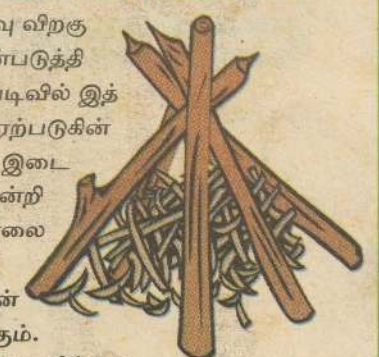 வு விறகு
ன்படுத்தி
டிவில் இத்
ரற்படுகின்
இடை
ன்றி
லை
ன்
தம்.